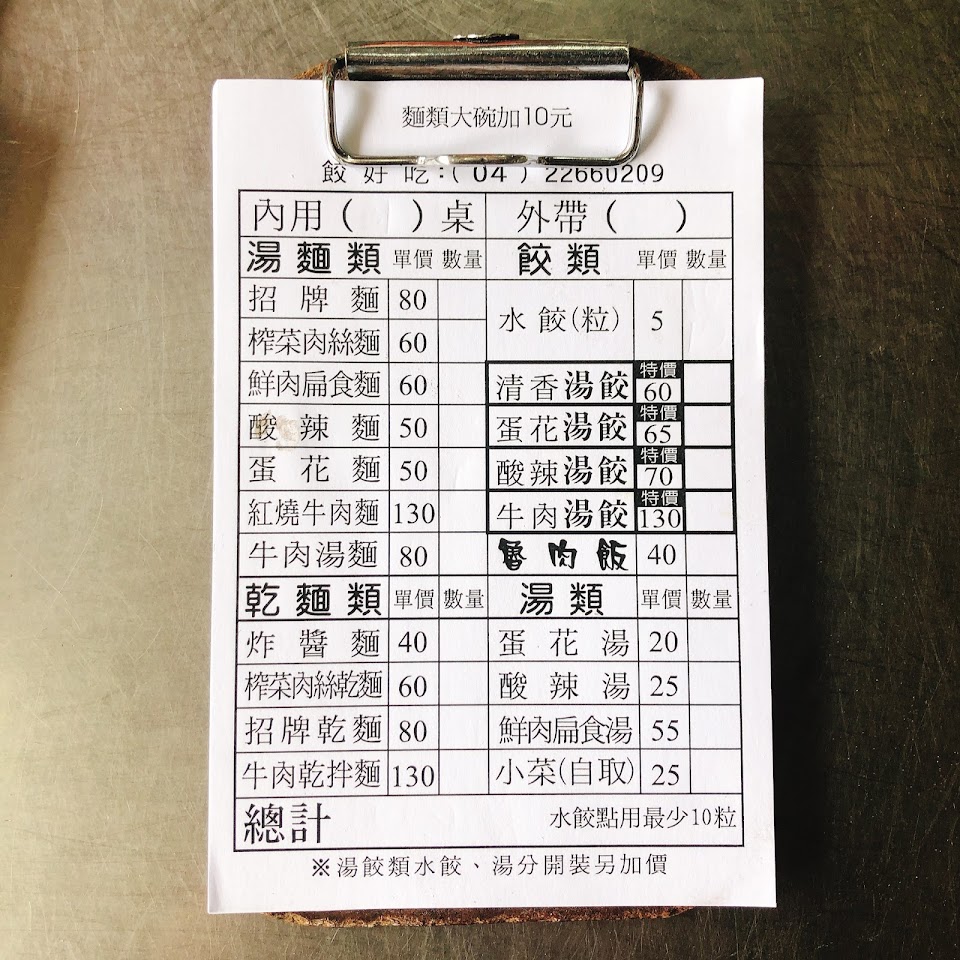 麵類大碗加10元
餃好吃:(04)22660209
內用( )桌 外帶( )
湯麵類 單價 數量 餃類 單價 數量
招牌麵 80 水餃(粒) 5
榨菜肉絲麵 60
鮮肉扁食麵 60 清香湯餃 特價 60
酸辣麵 50 蛋花湯餃 特價 65
蛋花麵 50 酸辣湯餃 特價 70
紅燒牛肉麵 130 牛肉湯餃 特價 130
牛肉湯麵 80 魯肉飯 40
乾麵類 單價 數量 湯類 單價 數量
炸醬麵 40 蛋花湯 20
榨菜肉絲乾麵 60 酸辣湯 25
招牌乾麵 80 鮮肉扁食湯 55
牛肉乾拌麵 130 小菜(自取) 25
總計 水餃點用最少10粒
※湯餃類水餃、湯分開裝另加價